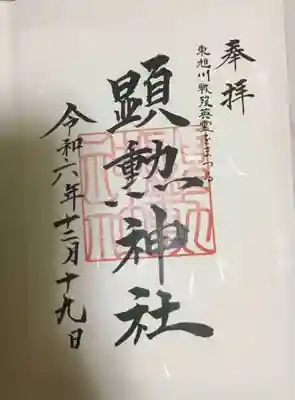 奉拝
東旭川戦没英霊をまつる
顕勲神社
令和六年十二月十九日